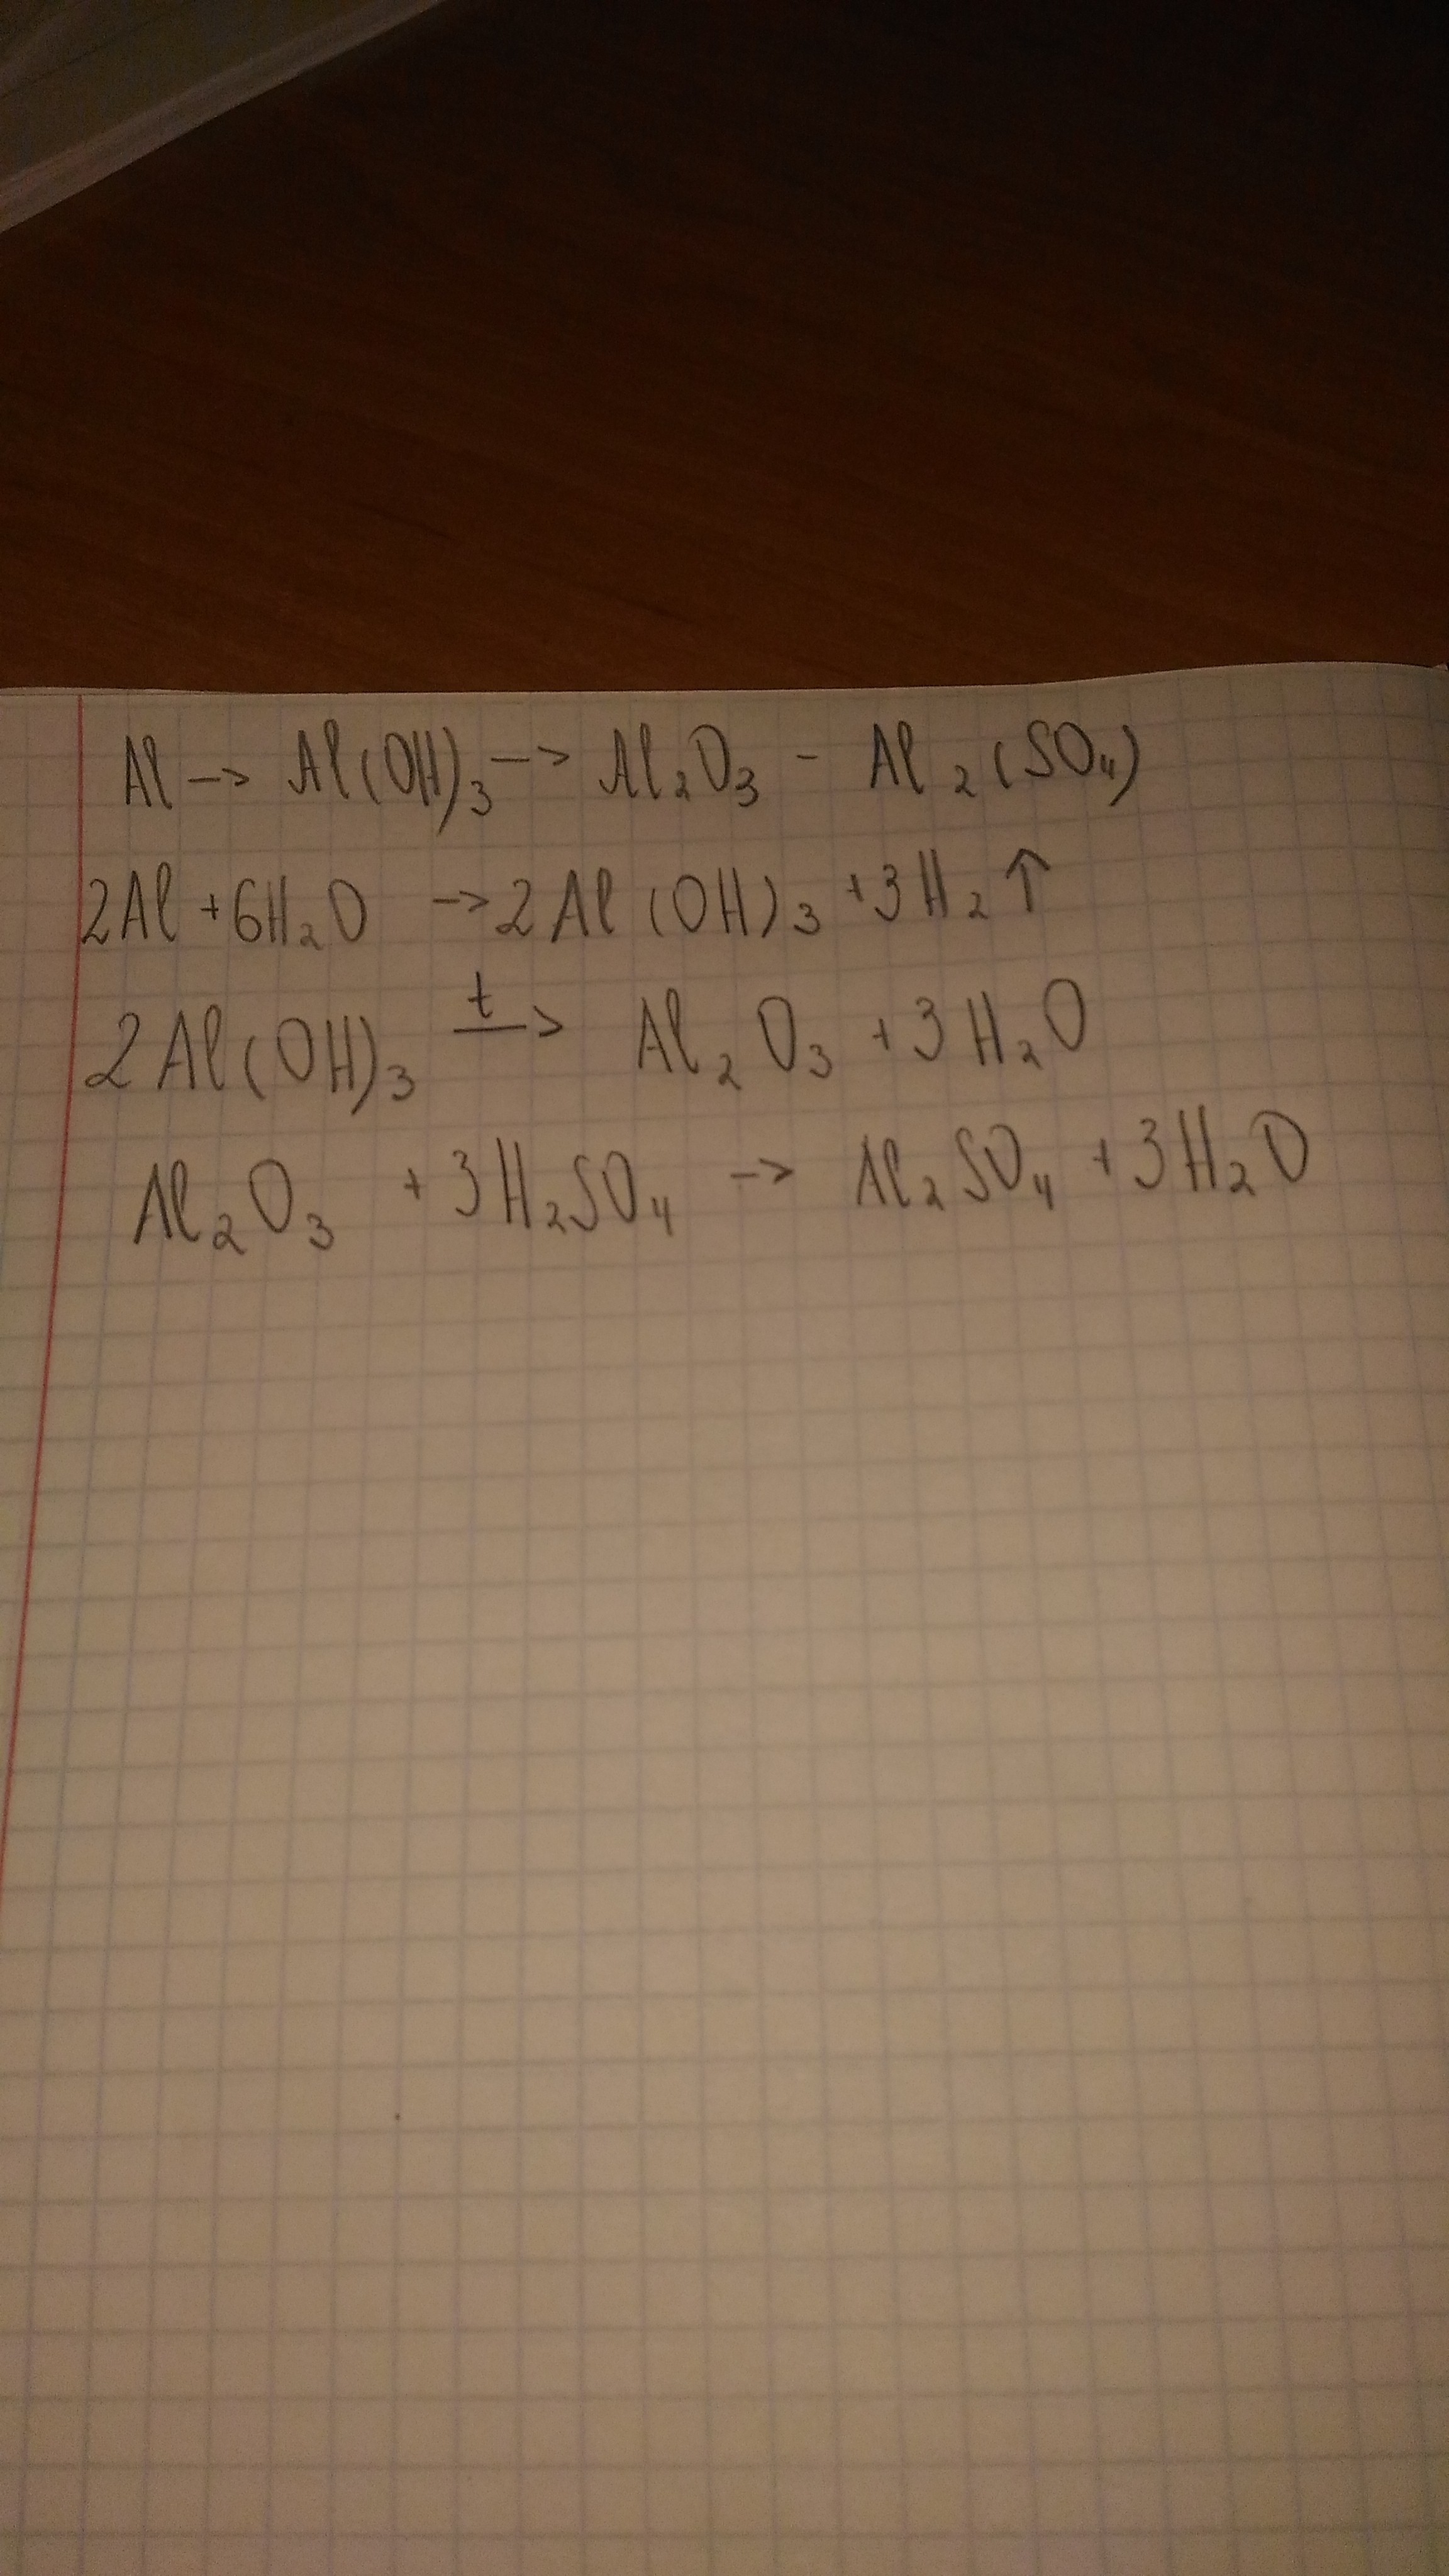 Al -> Al(OH)₃ -> Al₂O₃ - Al₂(SO₄)
2Al + 6H₂O -> 2Al(OH)₃ + 3H₂↑
2Al(OH)₃ t -> Al₂O₃ + 3H₂O
Al₂O₃ + 3H₂SO₄ -> Al₂SO₄ + 3H₂O